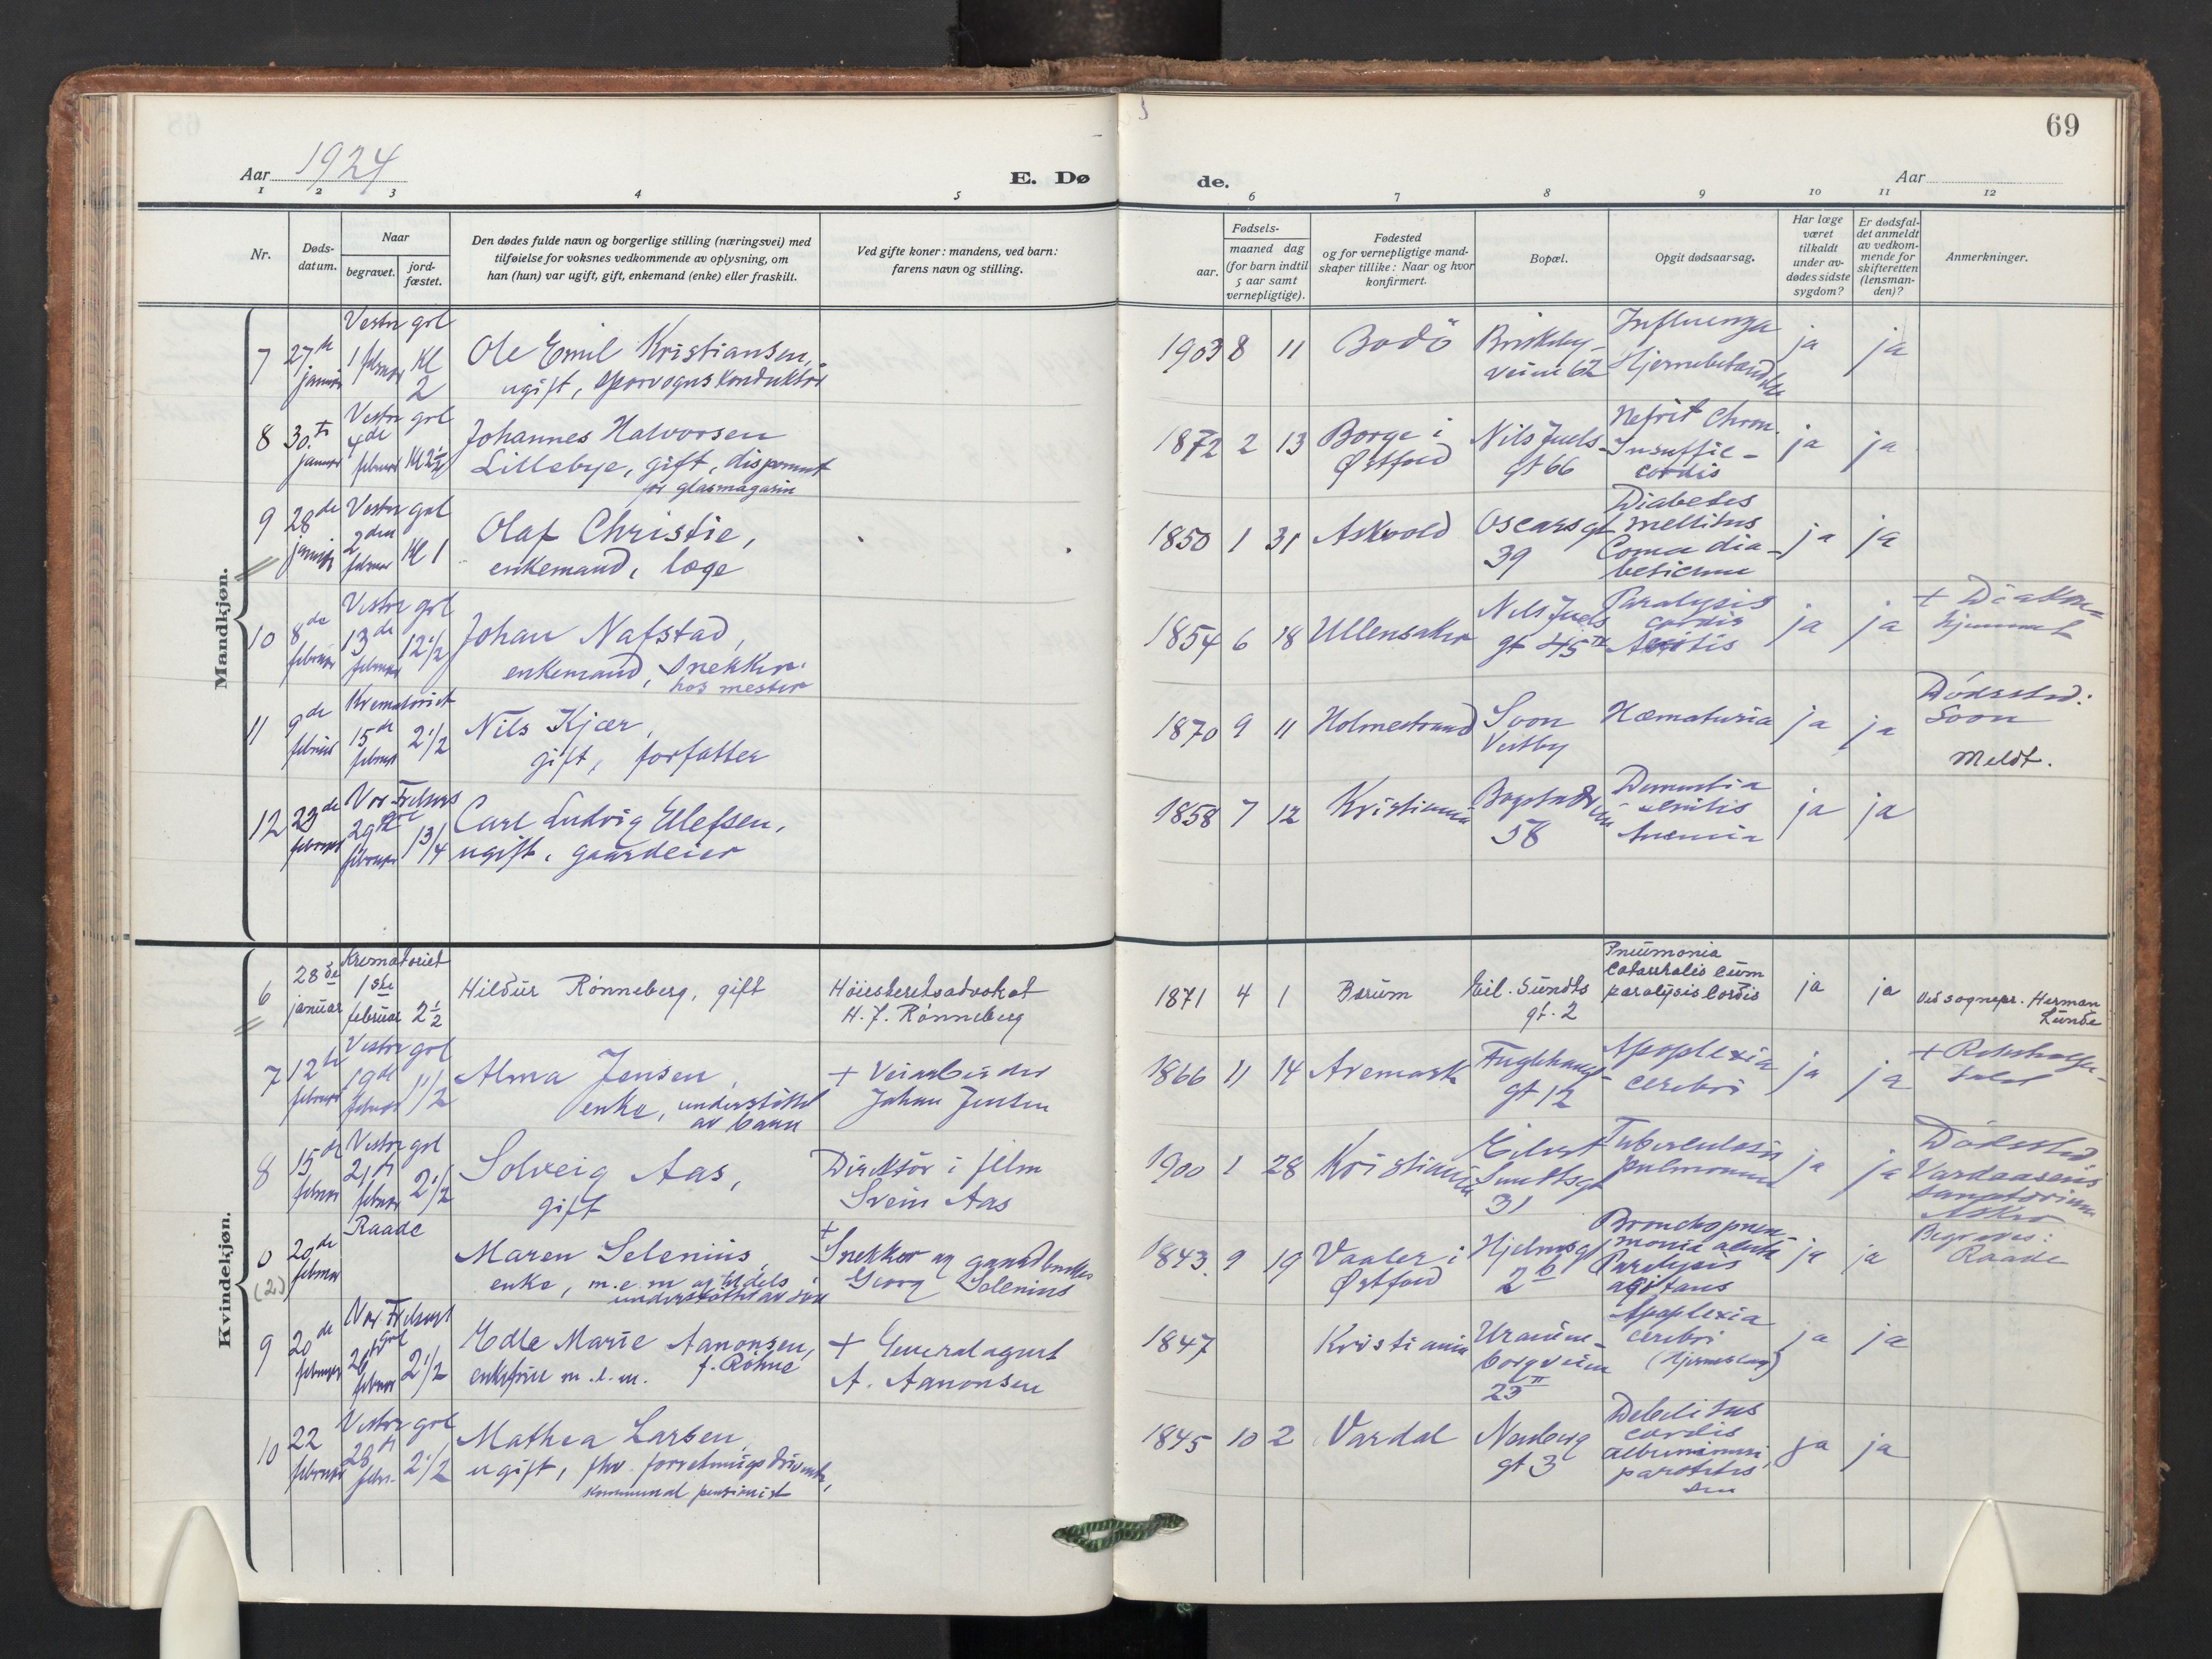 69
Aar 1924
E. Dø
de.
Aar
1 2 3 4 5
6 7 8 9 10 11 12
Nr.
Døds-
datum.
Naar
begravet.
jord-
fæstet.
Den dødes fulde navn og borgerlige stilling (næringsvei) med
tilføielse for voksnes vedkommende av oplysning, om
han (hun) var ugift, gift, enkemand (enke) eller fraskilt.
Ved gifte koner: mandens, ved barn:
farens navn og stilling.
Fødsels-
aar.
maaned dag
(for barn indtil
5 aar samt
vernepligtige).
Fødested
og for vernepligtige mand-
skaper tillike: Naar og hvor
konfirmert.
Bopæl.
Opgit dødsaarsag.
Har læge
været
tilkaldt
under av-
dødes sidste
sygdom?
Er dødsfal-
det anmeldt
av vedkom-
mende for
skifteretten
(lensman-
den)?
Anmerkninger.
Mandkjøn.
7 27de januar
Vestre grl
1 februar Kl 2
Ole Emil Kristiansen,
ugift, sporvognskonduktør
1903 8 11 Bodö
Briskeby-
veien 62
Influenza
Hjernebetændelse
ja ja
8 30.te januar
Vestre grl
4de februar Kl 2 1/2
Johannes Halvorsen
Lillebye, gift, disponent
for glasmagasin
1872 2 13 Borge i
Østfold
Nils Juels-
gt 66
Nefrit Chron.
Insuffic-
cordis
ja ja
9 28de januar
Vestre grl
2den februar Kl 1
Olaf Christie,
enkemand, læge
1850 1 31 Askvold
Oscarsgt
39
Diabetes
mellitus
Coma dia-
beticum
ja ja
10 8de februar
Vestre grl
13de februar 12 1/2
Johan Nafstad,
enkemand, snekker.
hos mester
1854 6 18 Ullensaker
Nils Juels
gt 45 IV
Paralysis
cordis
ja ja
+ Diakon-
hjemmet
11 9de februar
Krematoriet
15de februar 2 1/2
Nils Kjær,
gift, forfatter
1870 9 11 Holmestrand
Soon
Vestby
Hæmaturia
ja ja
Dødssted:
Soon
Meldt.
12 23de februar
Vor Frelsers grl
29de februar 1 3/4
Carl Ludvig Ellefsen,
ugift, gaardeier
1858 7 12 Kristiania
Bogstadveien
58
Dementia
senilis
Anæmia
ja ja
Kvindekjøn.
6 28de januar
Krematoriet
1ste februar 2 1/2
Hildur Rønneberg, gift
Höiesteretsadvokat
H. J. Rønneberg
1871 4 1 Bærum
Eil. Sundts
gt. 2
Pneumonia
Catarrhalis cum
paralysis Cordis
ja ja
Ved sognepr. Herman
Lunde
7 12te februar
Vestre grl
19de februar 1 1/2
Alma Jensen,
enke, understöttet
av barn
+ Veiarbeider
Johan Jensen
1866 11 14 Aremark
Fuglehaug-
gt 12
Apoplexia
cerebri
ja ja
8 15de februar
Vestre grl
21de februar 2 1/2
Solveig Aas,
gift
Direktör i film
Svein Aas
1900 1 28 Kristiania
Eilert
Sundtsgt
31
Tuberculosis
pulmonum
ja ja
Dödssted
Vardaasens
sanatorium
Asker
0
(2)
20de februar
Raade
Maren Selenius,
enke, m.e.m og tildels
understöttet av sön
+
Snekker og gaardbruker
Georg Selenius
1843. 9 19 Vaaler i
Østfold
Hjelmsgt
2 b
Bronchopneu-
monia acuta
Paralysis
agitans
ja ja
Begraves:
Raade
9 20de februar
Vor Frelsers grl
26de februar 2 1/2
Edle Marie Aanonsen,
enkefrue m.e.m. f. Röhne
+ Generalagent
A. Aanonsen
1847 Kristiania
Uranien-
borgveien
23 II
Apoplexia
cerebri
(Hjerneslag)
ja ja
10 22 februar
Vestre grl
28de febr. 2 1/2
Mathea Larsen,
ugift, fhv. forretningsdrivende,
kommunal pensionist
1845 10 2 Vardal
Norberg
gt 3
Debilitas
cordis
parotitis
ja ja